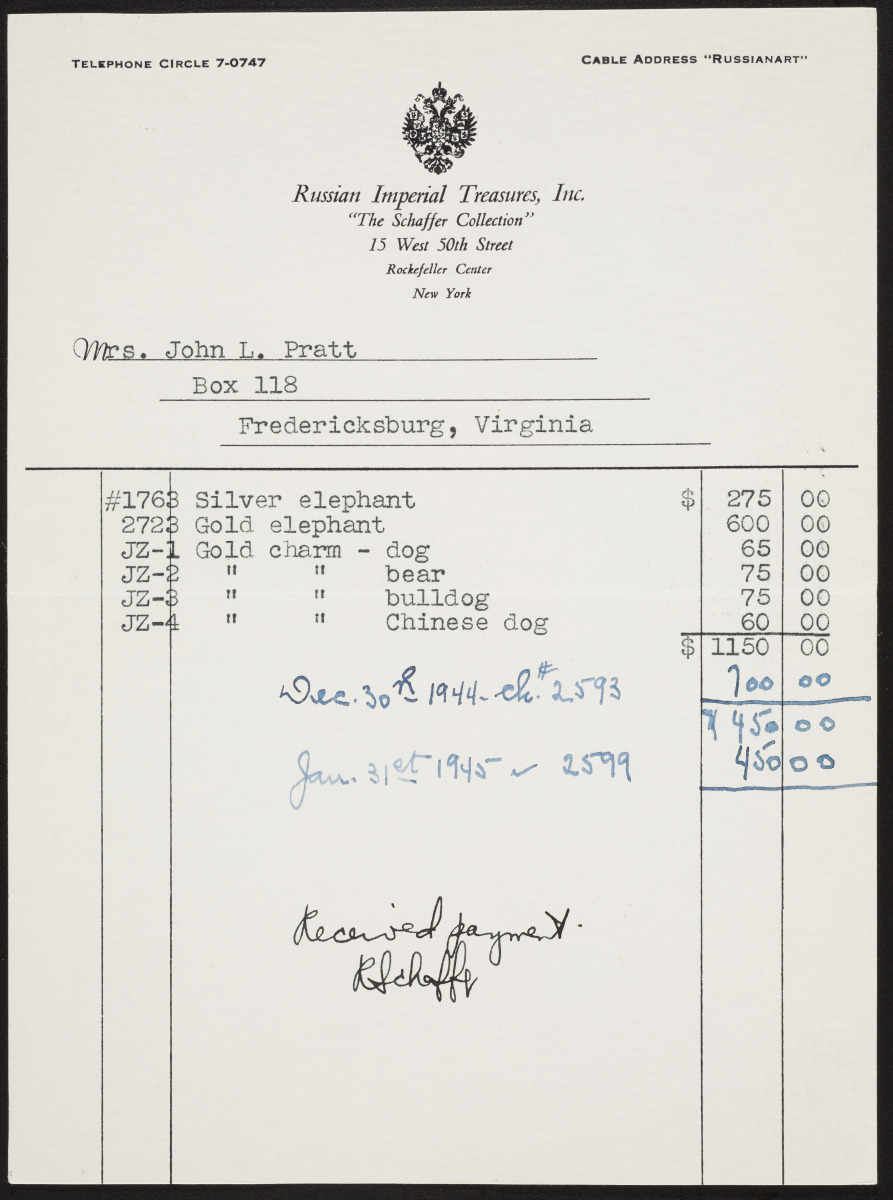 TELEPHONE CIRCLE 7-0747
CABLE ADDRESS "RUSSIANART"
Russian Imperial Treasures, Inc.
"The Schaffer Collection"
15 West 50th Street
Rockefeller Center
New York
Mrs. John L. Pratt
Box 118
Fredericksburg, Virginia
#1763 Silver elephant $ 275 00
2723 Gold elephant 600 00
JZ-1 Gold charm - dog 65 00
JZ-2 " " bear 75 00
JZ-3 " " bulldog 75 00
JZ-4 " " Chinese dog 60 00
$ 1150 00
Dec. 30th 1944 - ck. # 2593 700 00
$ 450 00
Jan. 31st 1945 ✓ 2599 450 00
Received payment.
RSchaffer